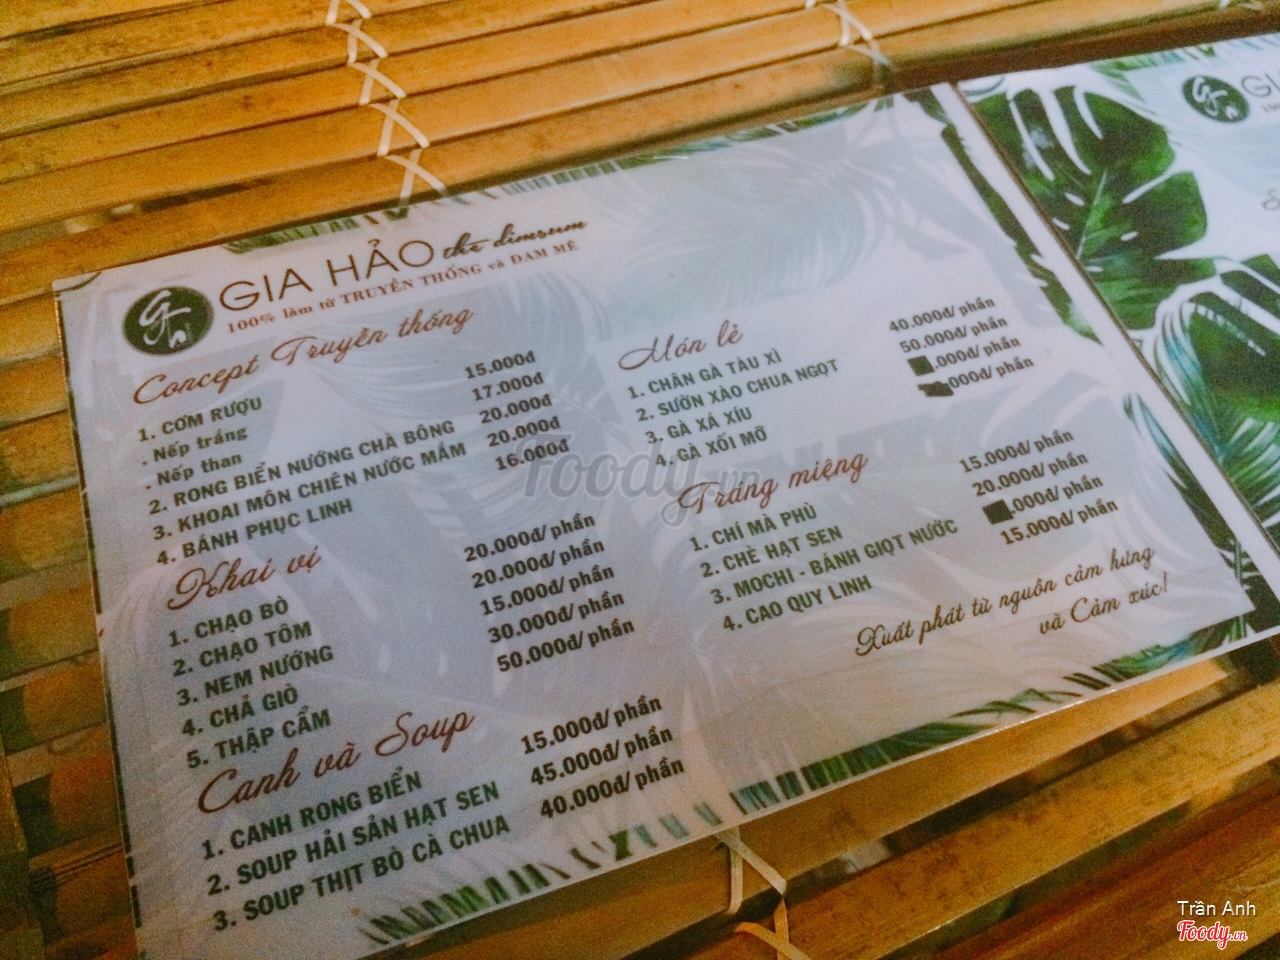 GIA HẢO the dimsum
100% làm từ TRUYỀN THỐNG và ĐAM MÊ
Concept Truyền thống
1. CƠM RƯỢU
- Nếp trắng 15.000đ
- Nếp than 17.000đ
2. RONG BIỂN NƯỚNG CHÀ BÔNG 20.000đ
3. KHOAI MÔN CHIÊN NƯỚC MẮM 20.000đ
4. BÁNH PHỤC LINH 16.000đ
Khai vị
1. CHẠO BÒ 20.000đ/ phần
2. CHẠO TÔM 20.000đ/ phần
3. NEM NƯỚNG 15.000đ/ phần
4. CHẢ GIÒ 30.000đ/ phần
5. THẬP CẨM 50.000đ/ phần
Canh và Soup
1. CANH RONG BIỂN 15.000đ/ phần
2. SOUP HẢI SẢN HẠT SEN 45.000đ/ phần
3. SOUP THỊT BÒ CÀ CHUA 40.000đ/ phần
Món lẻ
1. CHÂN GÀ TÀU XÌ 40.000đ/ phần
2. SƯỜN XÀO CHUA NGỌT 50.000đ/ phần
3. GÀ XÁ XÍU .000đ/ phần
4. GÀ XỐI MỠ .000đ/ phần
Tráng miệng
1. CHÍ MÀ PHÙ 15.000đ/ phần
2. CHÈ HẠT SEN 20.000đ/ phần
3. MOCHI - BÁNH GIỌT NƯỚC .000đ/ phần
4. CAO QUY LINH 15.000đ/ phần
Xuất phát từ nguồn cảm hứng
và Cảm xúc!
Foody.vn
Trần Anh
Foody.vn